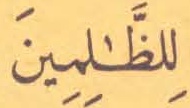 لِلظَّٰلِمِينَ